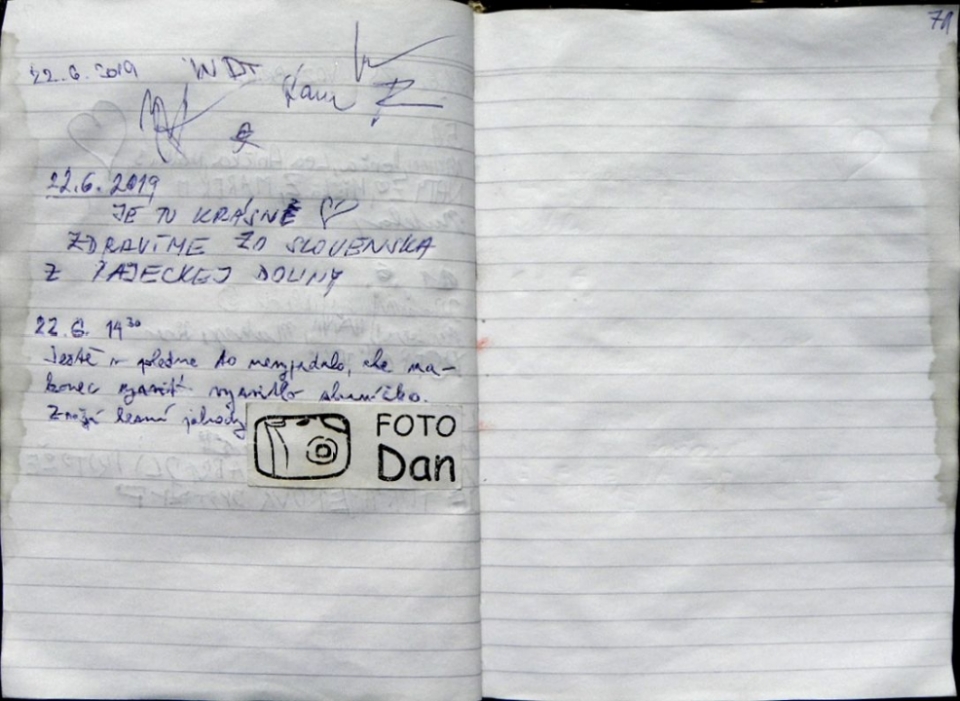 71
22.6.2019
22.6.2019
JE TU KRÁSNE
ZDRAVÍME ZO SLOVENSKA
Z RAJECKEJ DOLINY
22.6. 14³⁰
Ještě v poledne to nevypadalo, ale na-
konec sluníčko.
Zrají lesní jahody
FOTO
Dan